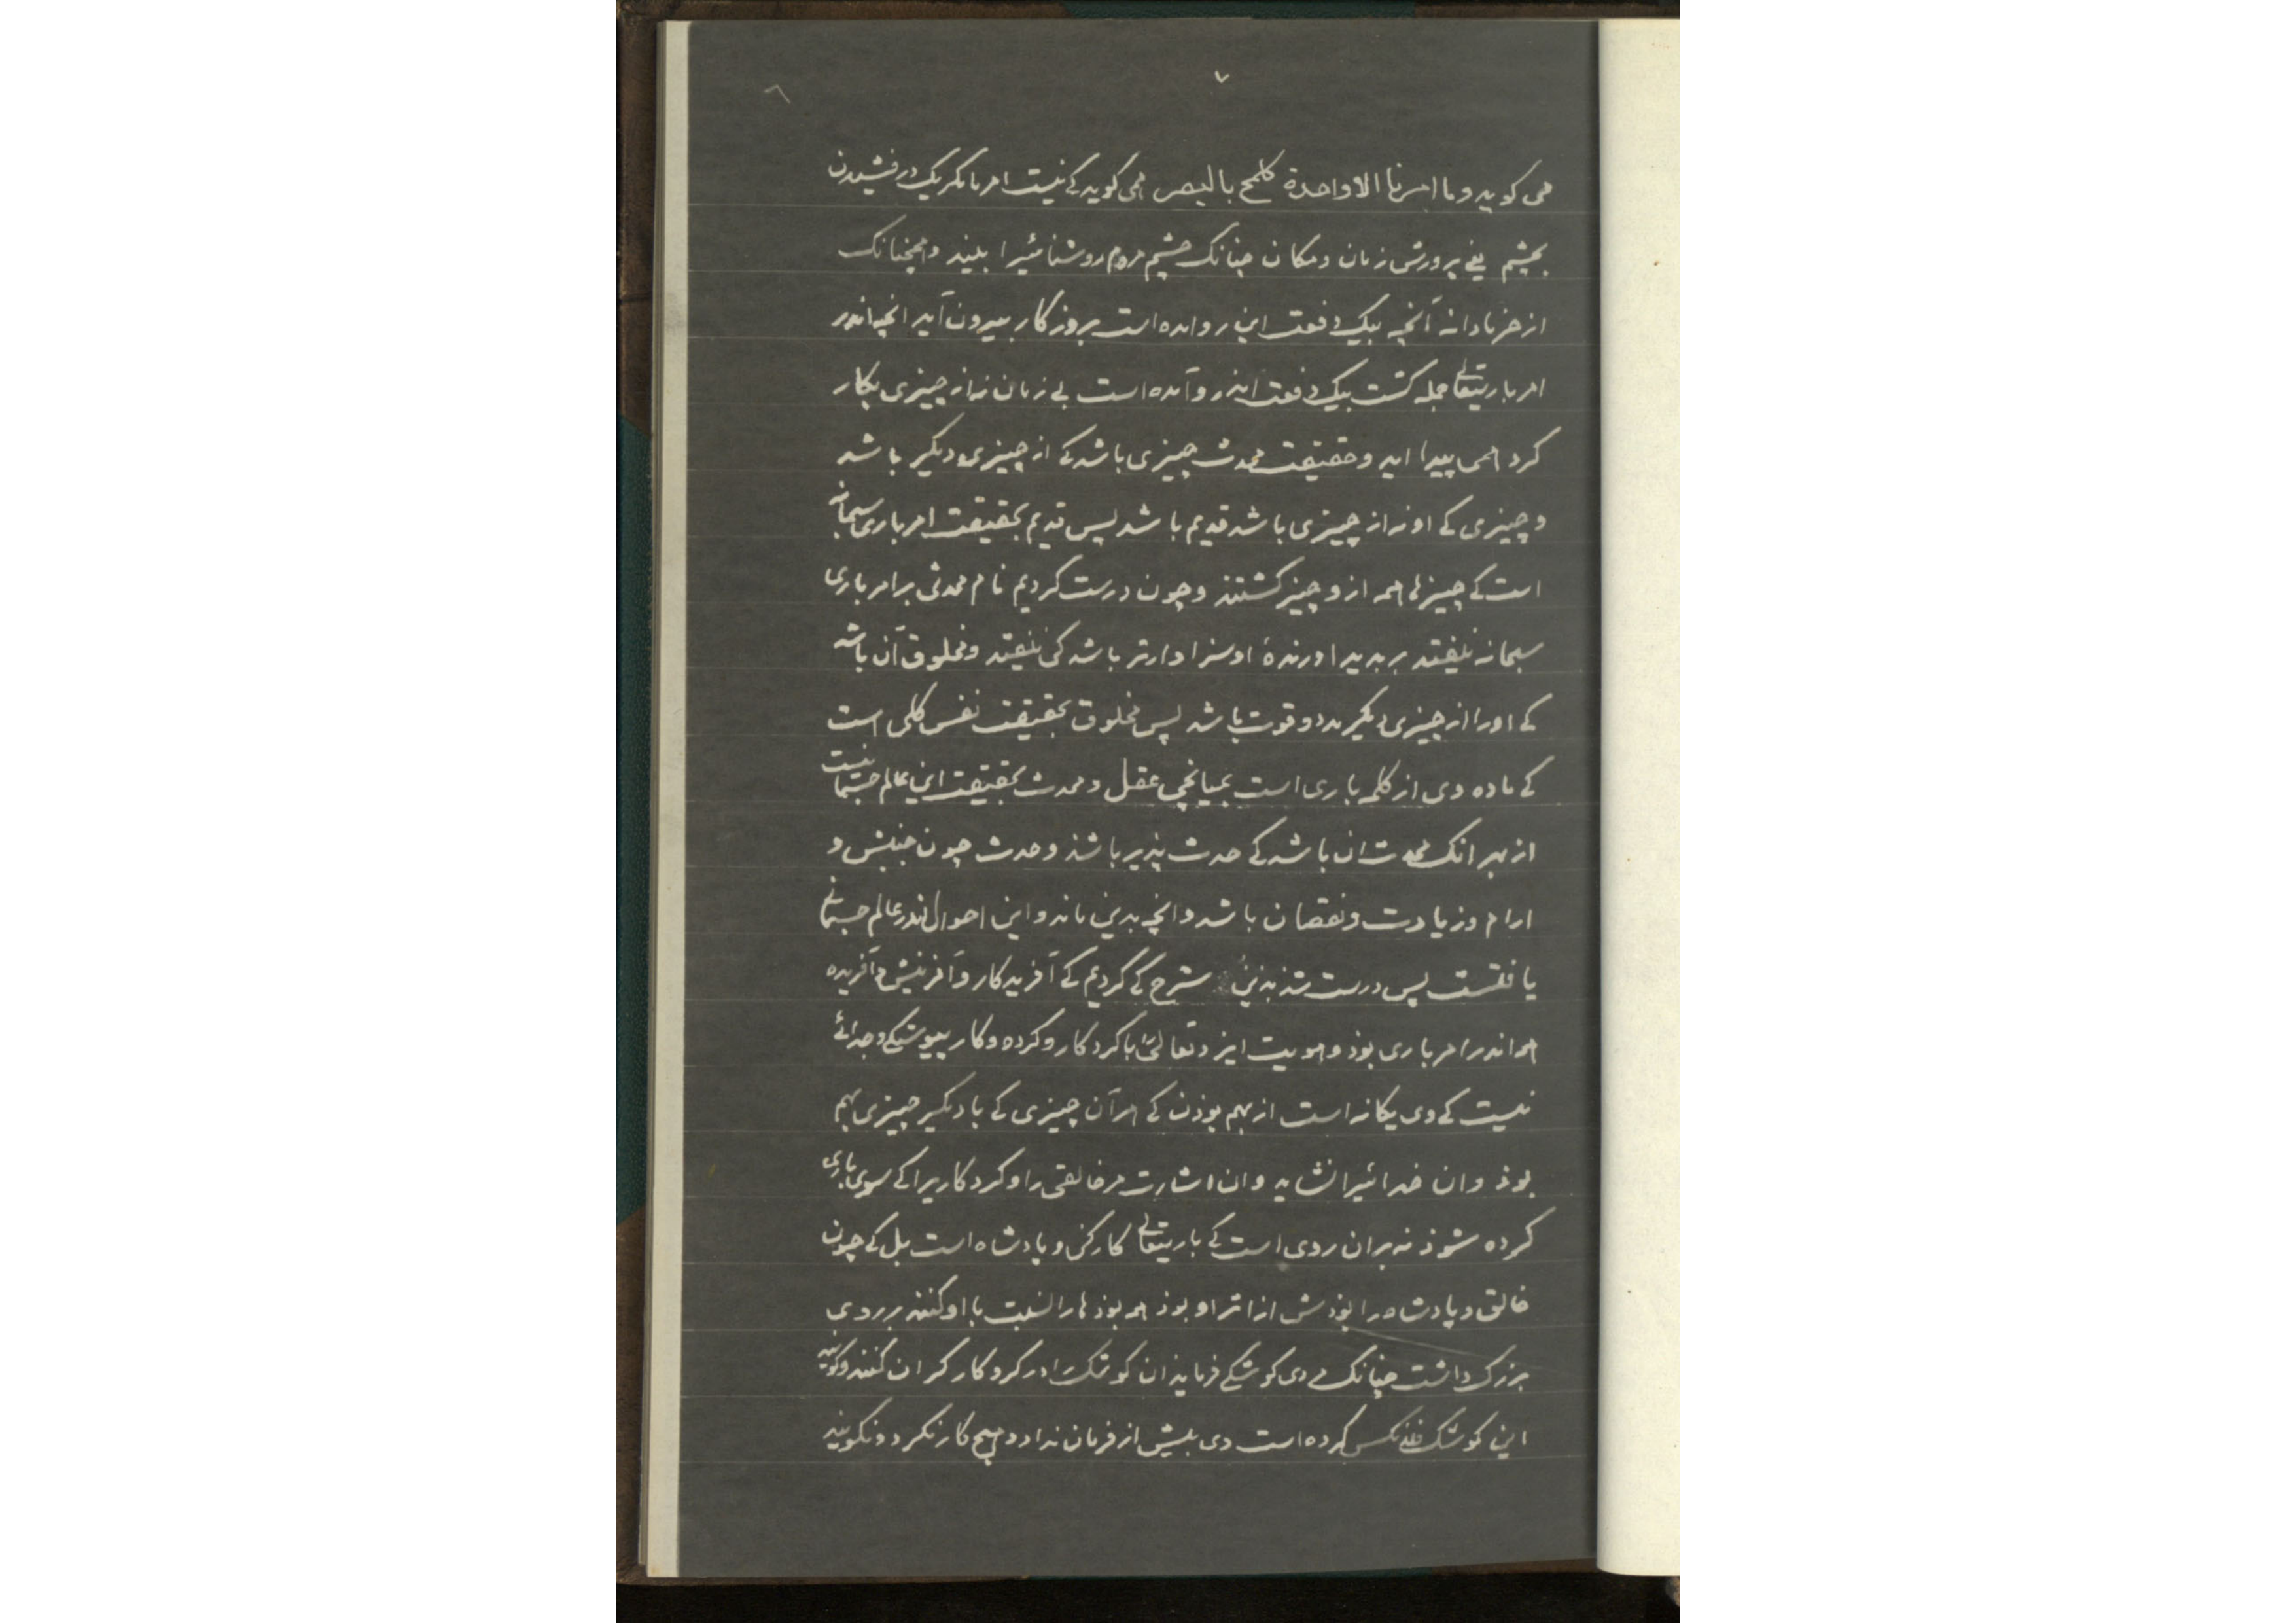 ۷
می کوید وما امرنا الا واحدة کلمح بالبصر همی کوید کے نیست امر ما مکر یک درفشیدن
بچشم یعنے پرورش زمان و مکان چنانک چشم مردم روشنائیرا ببیند و همچنانک
از خرما دانه آنچه بیک دفعت این رو امده است بروزکار بیرون آید انچه اندر
امر باریتعالے جمله کشت بیک دفعت اندرو آمده است بے زمان نه از چیزی بکار
کرد همی پیدا اید و حقیقت محدث چیزی باشد کے از چیزی دیکر باشد
و چیزی کے او نه از چیزی باشد قدیم باشد پس قدیم بحقیقت امر باری سبحانه
است کے چیزها همه ازو چیز کشتند و چون درست کردیم نام محدثی بر امر باری
سبحانه نیفتد بر پدید اورندهٔ او سزاوارتر باشد کی نیفتد و مخلوق آن باشد
کے اورا از چیزی دیکر مدد و قوت باشد پس مخلوق بحقیقت نفس کلی است
کے ماده وی از کلمه باری است بمیانجی عقل و محدث بحقیقت این عالم جسمانیست
از بهر انک محدث ان باشد کے حدث پذیر باشذ و حدث چون جنبش و
ارام و زیادت و نقصان باشد و انچه بدین ماند و این احوال اندر عالم جسمانے
یافتست پس درست شذ بذین شرح کے کردیم کے آفریدکار و آفرینش و آفریده
همه اندر امر باری بوذ و هویت ایزد تعالیٰ را با کردکار و کرده و کار پیوستکے و جدائے
نیست کے وی یکانه است از بهم بوذن کے هر آن چیزی کے با دیکر چیزی بهم
بوذ و ان خدائیرا نشاید و ان اشارت مر خالقی را و کردکاریرا کے سوی باری
کرده شوذ نه بران روی است کے باریتعالے کارکن و پادشاه است بل کے چون
خالق و پادشاه را بوذش از اثر او بوذ همه بوذها را نسبت با او کنند بر روی
بزرک داشت چنانک دی کوشکے فرمایذ ان کوشک را درکر و کارکران کنند و کویند
این کوشک کرده است وی بیش از فرمان نداد و هیچ کار نکرد و نکویند